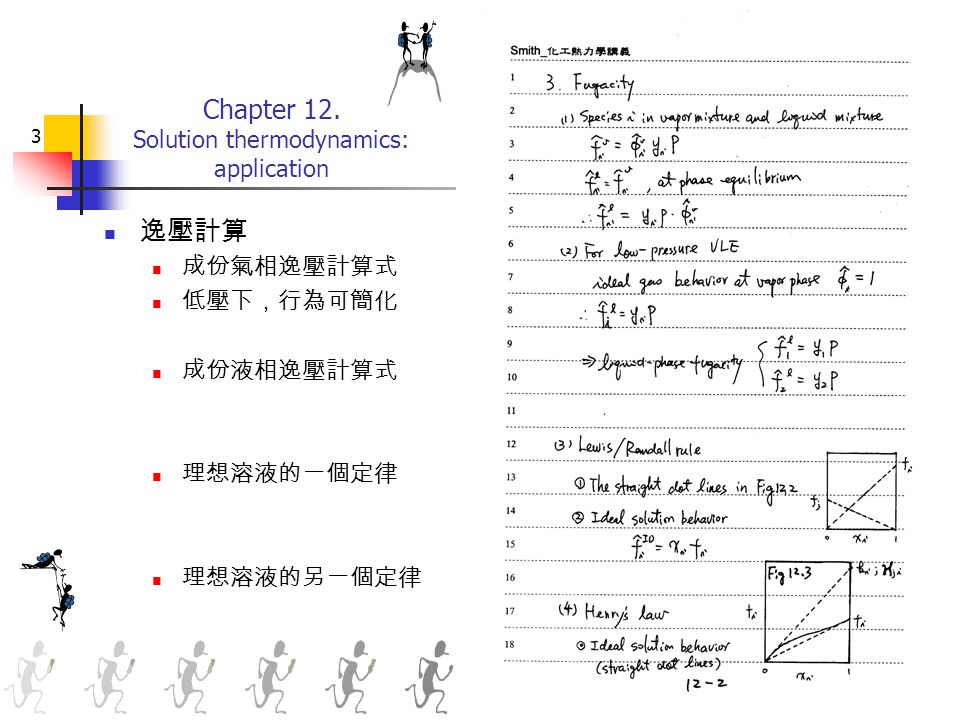 3
Chapter 12.
Solution thermodynamics:
application
逸壓計算
成份氣相逸壓計算式
低壓下，行為可簡化
成份液相逸壓計算式
理想溶液的一個定律
理想溶液的另一個定律
Smith_化工熱力學講義
1 3. Fugacity
2 (1) Species i in vapor mixture and liquid mixture
3 f̂ᵢᵛ = φ̂ᵢᵛ yᵢ P
4 f̂ᵢˡ = f̂ᵢᵛ , at phase equilibrium
5 ∴ f̂ᵢˡ = yᵢ P · φ̂ᵢᵛ
6 (2) For low-pressure VLE
7 ideal gas behavior at vapor phase φ̂ᵢ = 1
8 ∴ f̂ᵢˡ = yᵢ P
9 ⇒ liquid-phase fugacity { f̂₁ˡ = y₁ P
10 f̂₂ˡ = y₂ P
11
12 (3) Lewis/Randall rule
13 ① The straight dot lines in Fig 12.2
14 ② Ideal solution behavior
15 f̂ᵢᴵᴰ = xᵢ fᵢ
fᵢ
fⱼ
0 xᵢ 1
16
17 (4) Henry's law
18 ① Ideal solution behavior
(straight dot lines)
12-2
Fig 12.3
fᵢ
fᵢ
0 xᵢ 1